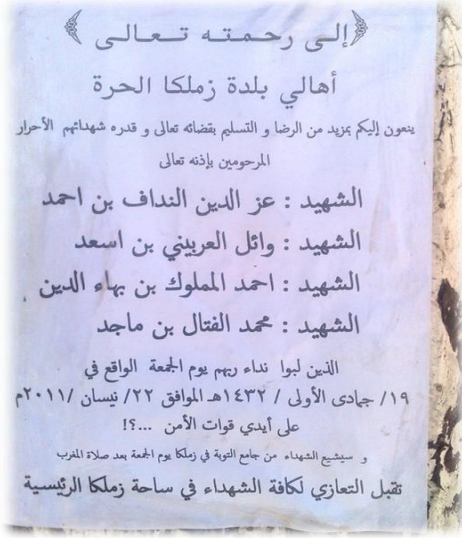 ﴿إلـى رحـمـتـه تـعـالـى﴾
أهالي بلدة زملكا الحرة
ينعون إليكم بمزيد من الرضا و التسليم بقضائه تعالى و قدره شهدائهم الأحرار
المرحومين بإذنه تعالى
الشهيد : عز الدين النداف بن احمد
الشهيد : وائل العربيني بن اسعد
الشهيد : احمد المملوك بن بهاء الدين
الشهيد : محمد الفتال بن ماجد
الذين لبوا نداء ربهم يوم الجمعة الواقع في
١٩/ جمادى الأولى / ١٤٣٢هـ الموافق ٢٢/ نيسان /٢٠١١م
على أيدي قوات الأمن ...؟!
و سيشيع الشهداء من جامع التوبة في زملكا يوم الجمعة بعد صلاة المغرب
تقبل التعازي لكافة الشهداء في ساحة زملكا الرئيسية